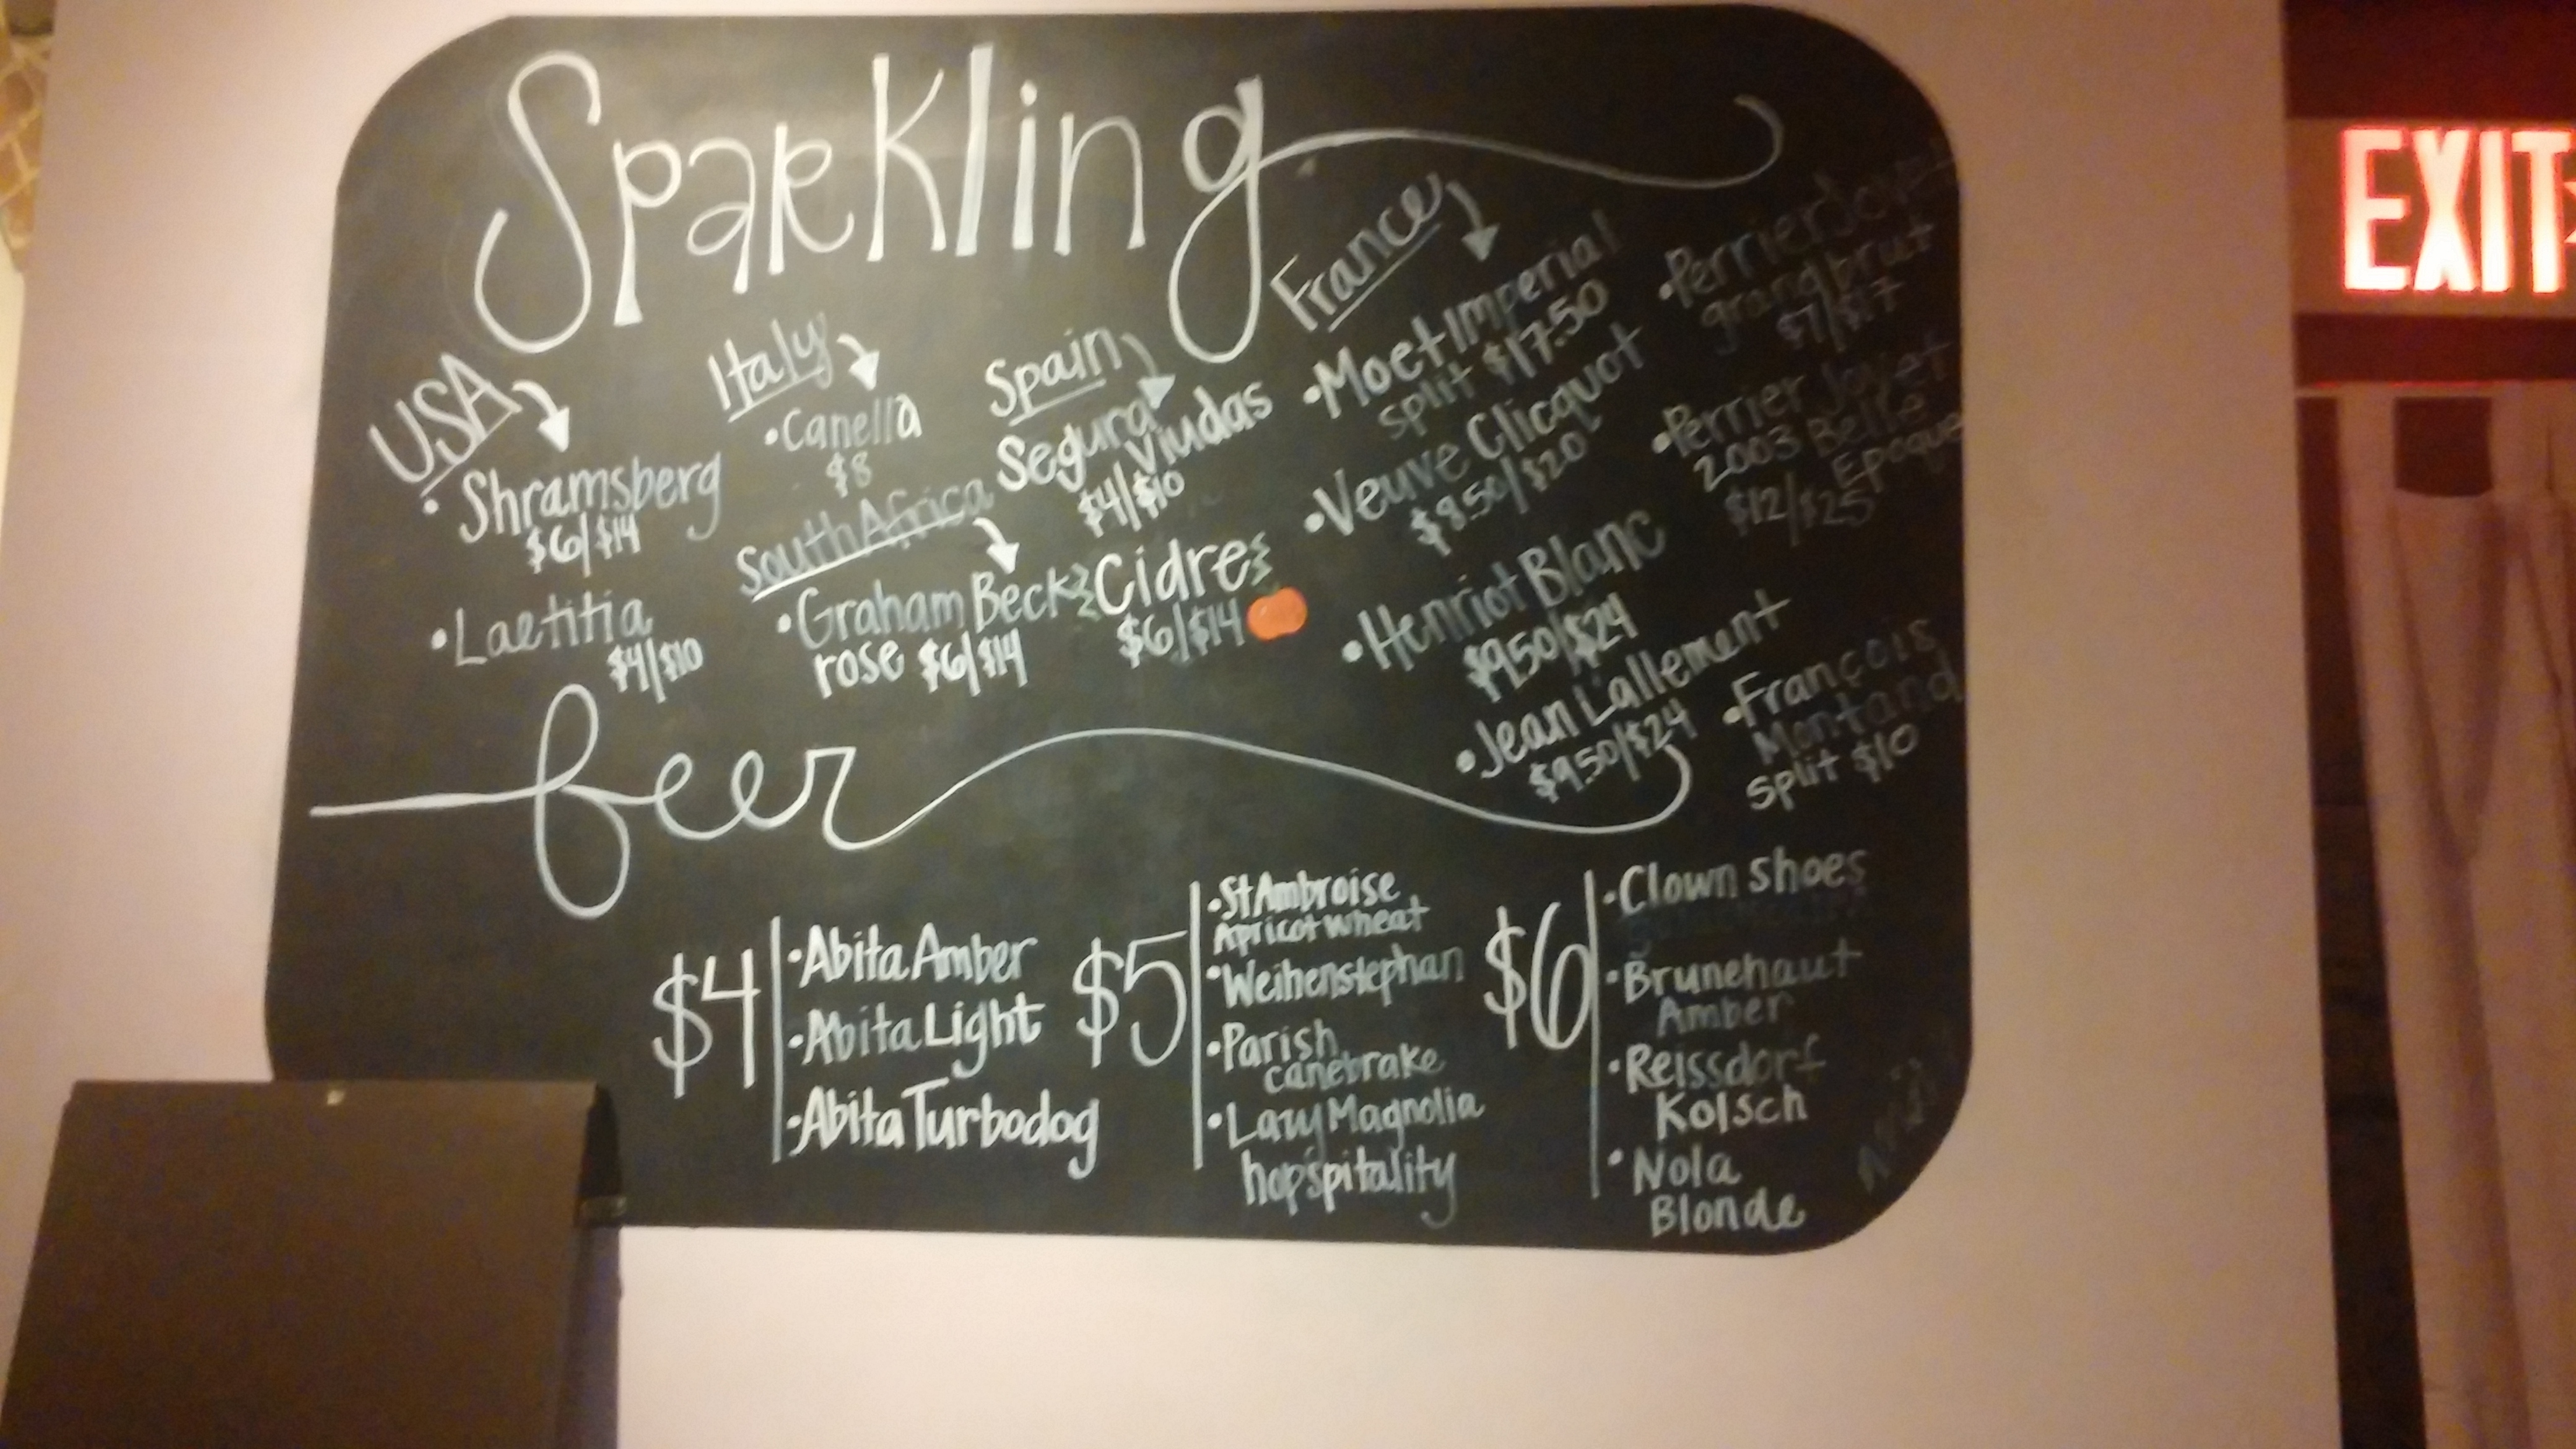 Sparkling
USA
• Shramsberg
$6/$14
• Laetitia
$4/$10
Italy
• Canella
$8
South Africa
• Graham Beck
rose $6/$14
Spain
Segura
Viudas
$4/$10
Cidre
$6/$14
France
• Moet Imperial
split $17.50
• Veuve Clicquot
$8.50/$20
• Henriot Blanc
$9.50/$24
• Jean L'allement
$9.50/$24
• Perrier Jouet
grand brut
$7/$17
• Perrier Jouet
2003 Belle
Epoque
$12/$25
• François
Montand
split $10
beer
$4
• Abita Amber
• Abita Light
• Abita Turbodog
$5
• St Ambroise
Apricot Wheat
• Weihenstephan
• Parish
canebrake
• Lazy Magnolia
hop'spitality
$6
• Clown Shoes
• Brunehaut
Amber
• Reissdorf
Kolsch
• Nola
Blonde
EXIT